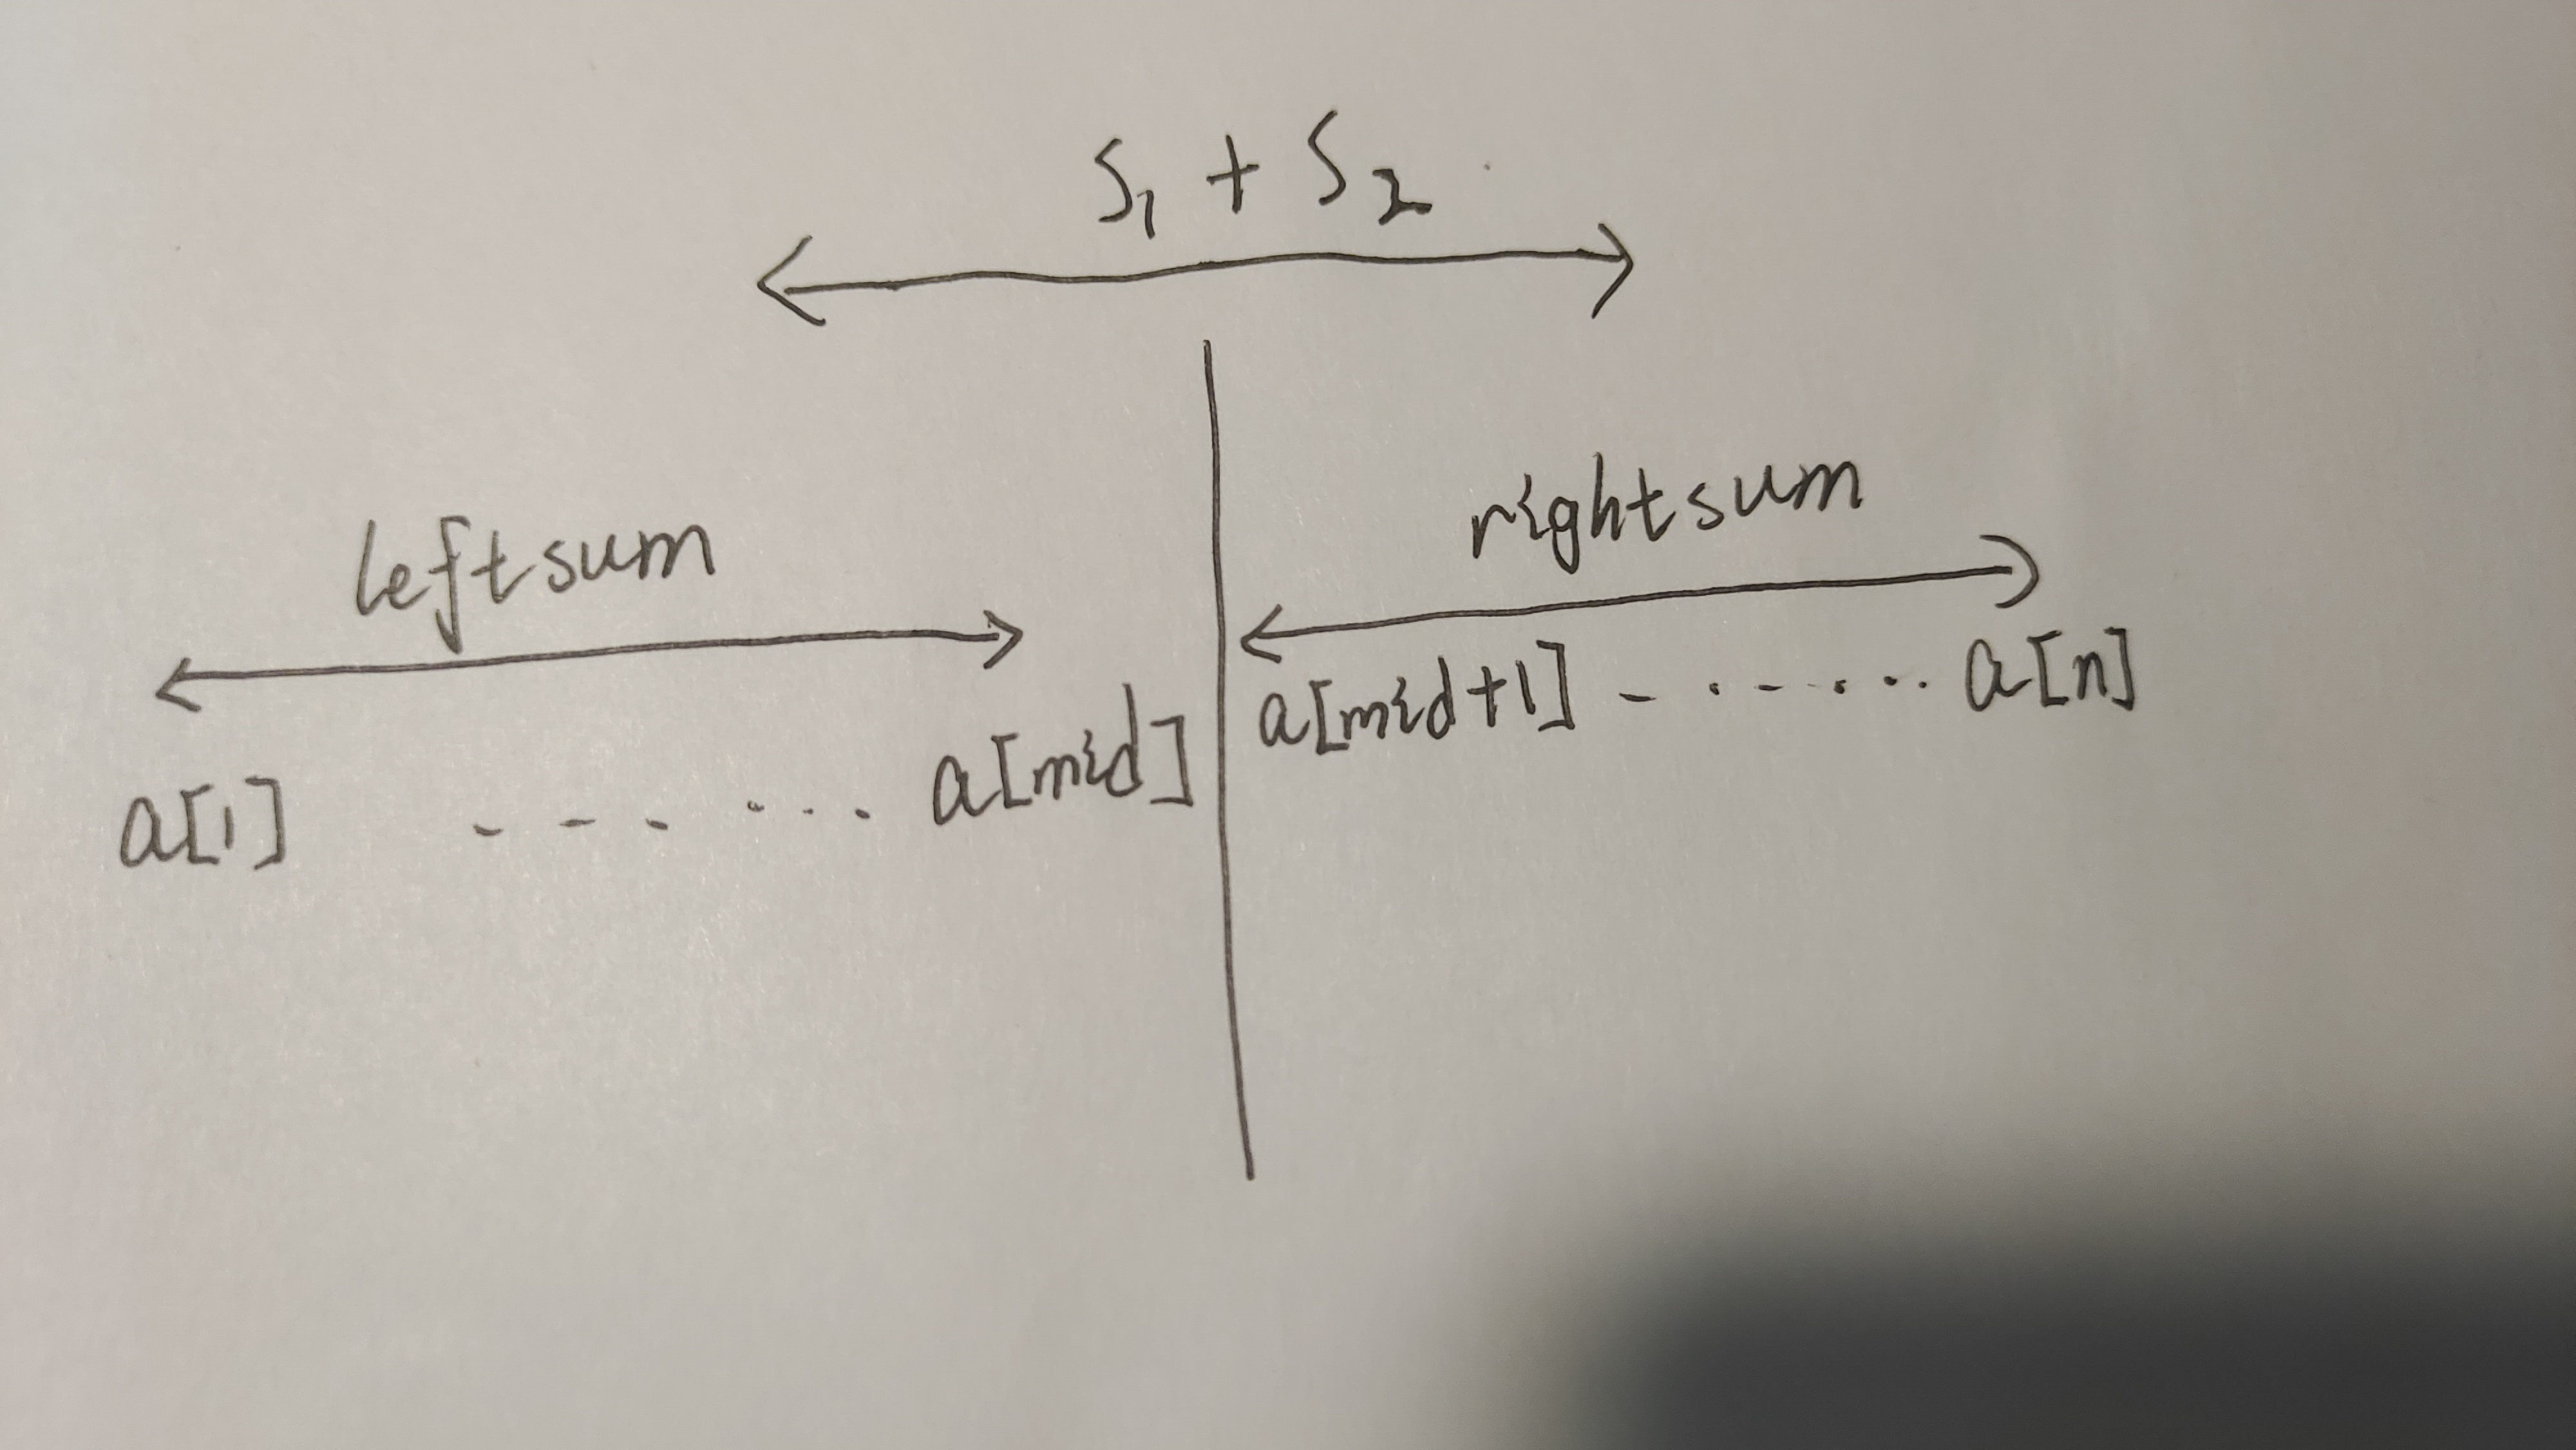 S₁ + S₂
leftsum
rightsum
a[1] - - - · · · a[mid]
a[mid+1] - · - · · · a[n]